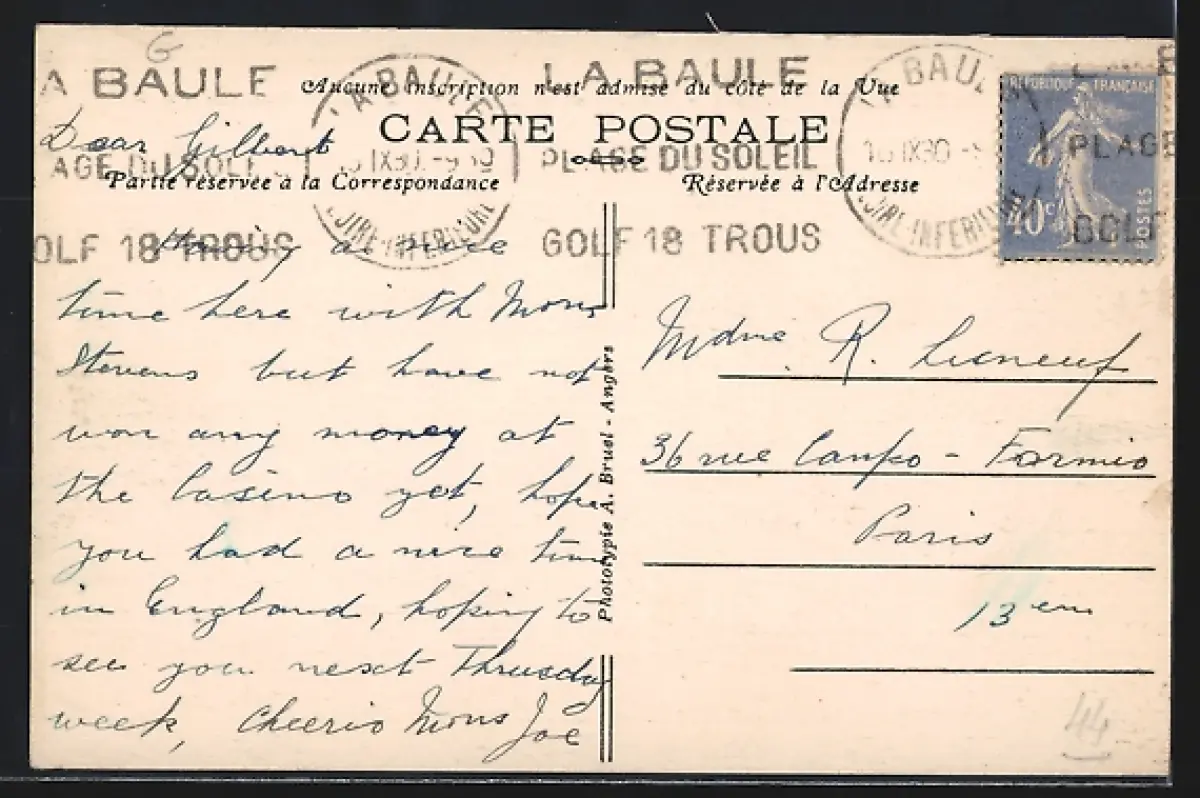 G
A BAULE
LA BAULE
Aucune inscription n'est admise du côté de la Vue
CARTE POSTALE
AGE DU SOLEIL
PLAGE DU SOLEIL
PLAGE
Partie réservée à la Correspondance
Réservée à l'Adresse
OLF 18 TROUS
GOLF 18 TROUS
GOLF
LA BAULE
LOIRE-INFERIEURE
LA BAULE
LOIRE-INFERIEURE
RÉPUBLIQUE FRANÇAISE
40c
POSTES
Dear Gilbert
Having a nice
time here with Mons
Stevens but have not
won any money at
the Casino yet, hope
you had a nice time
in England, hoping to
see you next Thrusday
week, Cheerio Mons Joe
Phototypie A. Bruel - Angers
Mdme R.
36 rue Campo - Formio
Paris
13 em
44